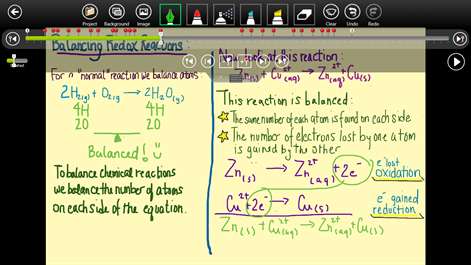 Project Background Image Clear Undo Redo
Balancing Redox Reactions:
For a "normal" reaction we balance atoms
2H₂(g) + O₂(g) → 2H₂O(g)
4H 4H
2O 2O
Balanced!
To balance chemical reactions
we balance the number of atoms
on each side of the equation.
this reaction:
Zn(s) + Cu²⁺(aq) → Zn²⁺(aq) + Cu(s)
This reaction is balanced:
The same number of each atom is found on each side
The number of electrons lost by one atom
is gained by the other
Zn(s) → Zn²⁺(aq) + 2e⁻
e⁻ lost
oxidation
Cu²⁺ + 2e⁻ → Cu(s)
e⁻ gained
reduction
Zn(s) + Cu²⁺(aq) → Zn²⁺(aq) + Cu(s)